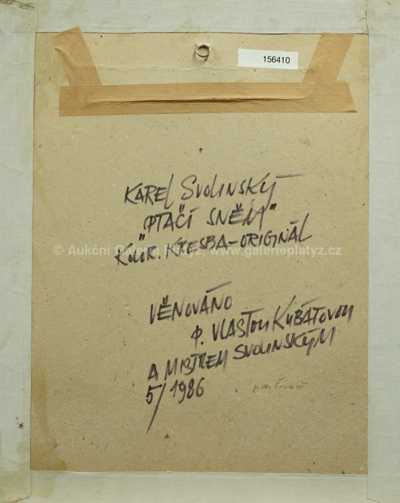 156410
KAREL SVOLINSKÝ
"PTAČÍ SNĚM"
KOLOR. KRESBA-ORIGINÁL
© Aukční Galerie Platýz, www.galerieplatyz.cz
VĚNOVÁNO
P. VLASTOU KUBÁTOVOU
A MISTREM SVOLINSKÝM
5/1986